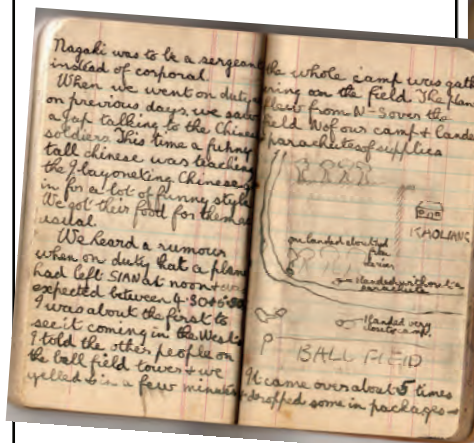 Nagaki was to be a sergeant
instead of corporal.
When we went on duty as
on previous days, we saw
a Jap talking to the Chinese
soldiers. This time a funny
tall chinese was teaching
the 9 layoneting Chinese
in for a lot of funny style
We got their food for them as
usual.
We heard a rumour
when on duty that a plane
had left SIAN at noon +
expected between 4.30 +
I was about the first to
see it coming in the West
I told the other people on
the ball field tower + we
yelled + in a few minutes
the whole camp was gath
ering on the field. The plane
flew from N-S over the
field W of our camp + landed
parachutes of supplies
KAOLIANG
one landed about
1 landed without a
parachute
1 landed very
close to camp.
BALL FIELD
It came over about 5 times
+ dropped some in packages